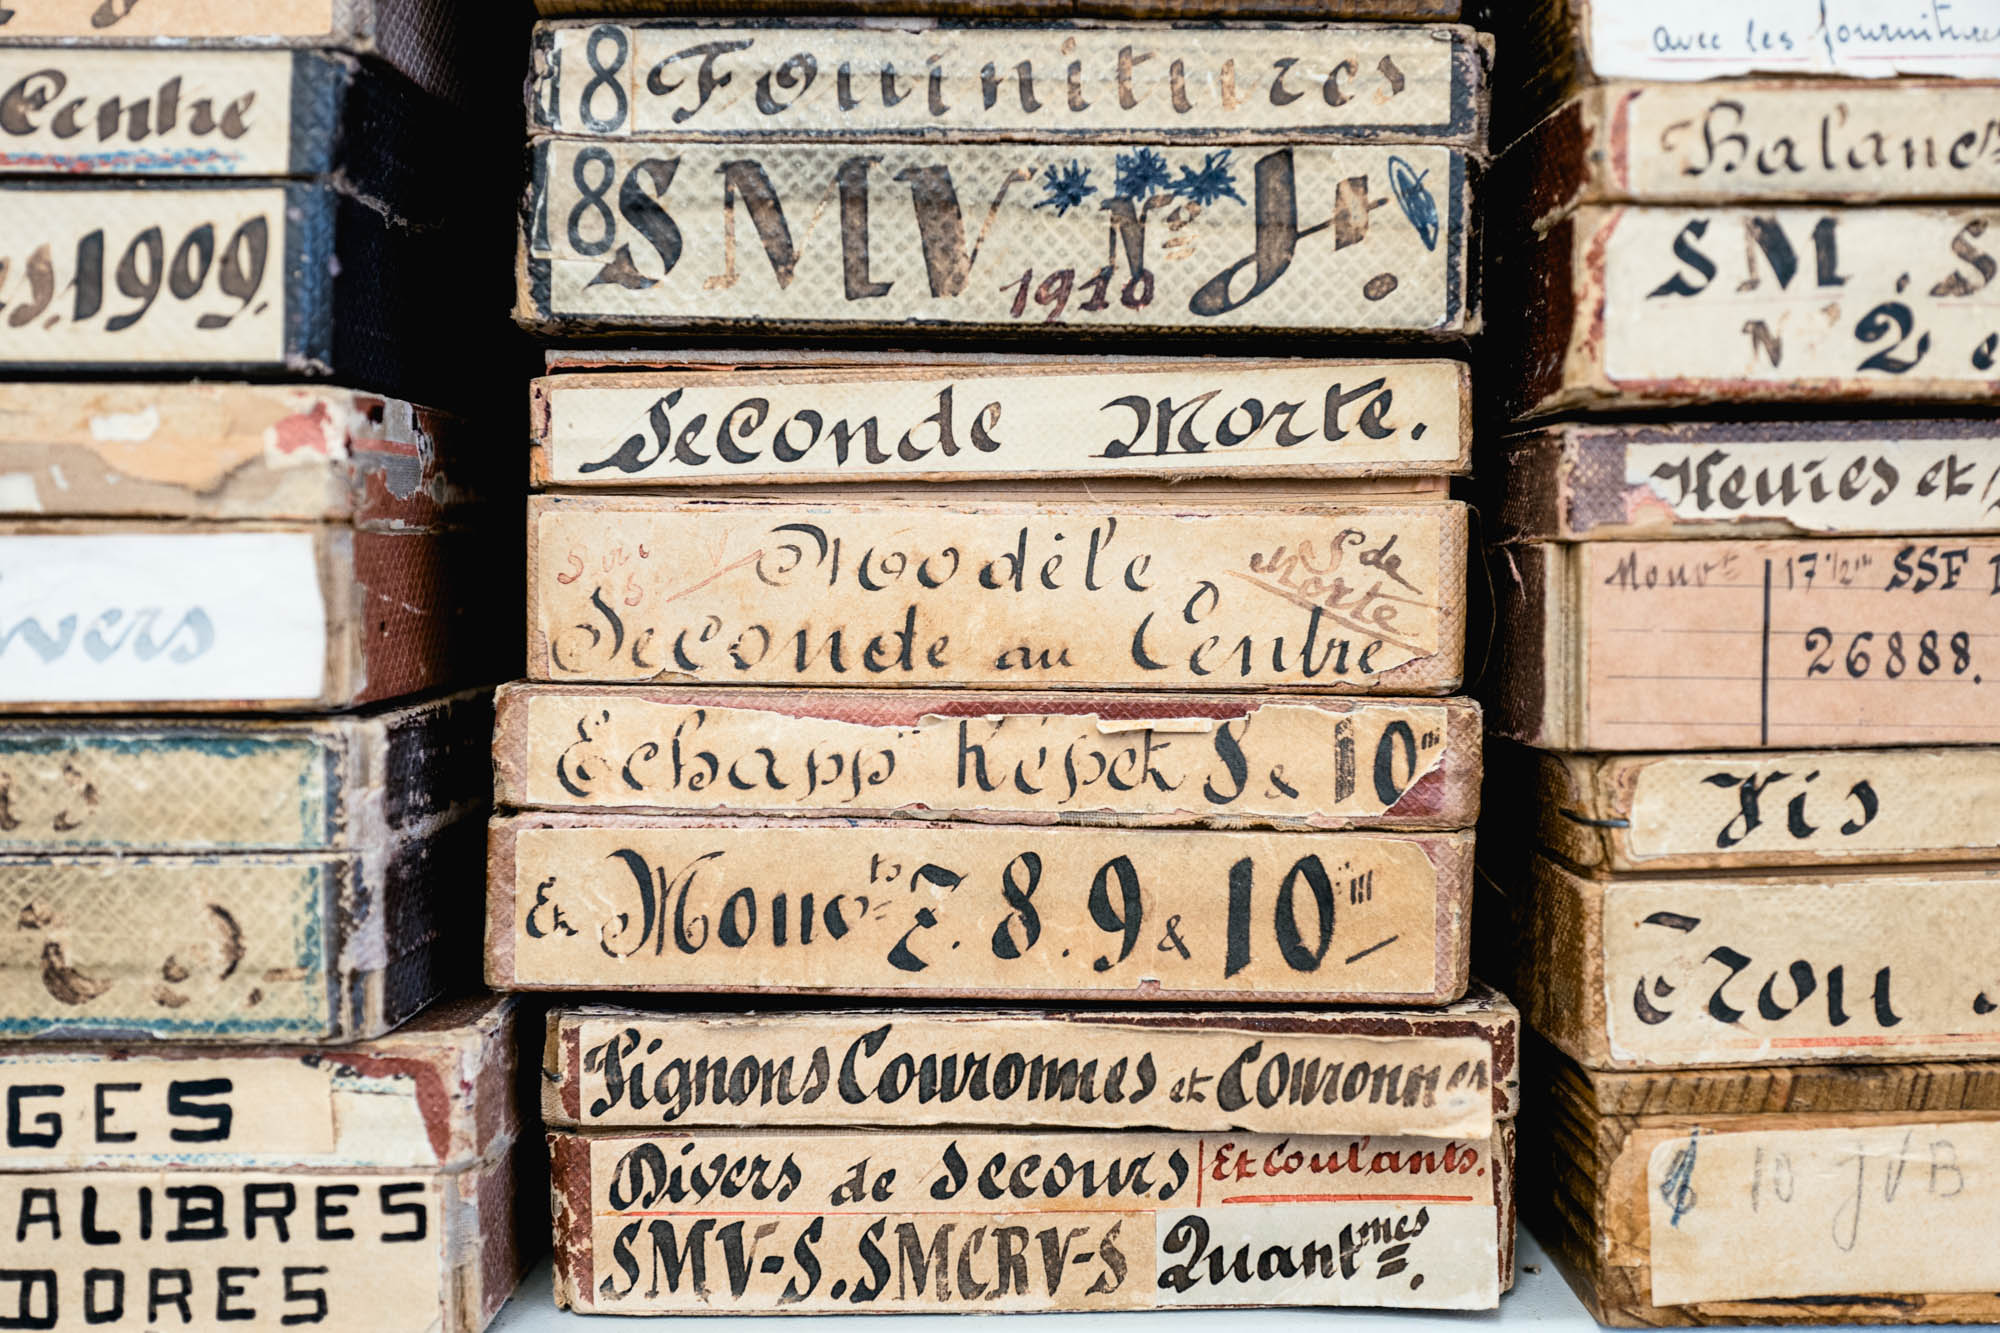 Centre
1909.
vers
GES
ALIBRES
DORES
18 Fournitures
18 SMV Nº
1910
Seconde Morte.
Modèle
Seconde au Centre
S de
Morte
Echapp Répét 8 & 10'''
Et Mouvts 7. 8. 9 & 10'''
Pignons Couronnes et Couronnes
Divers de Secours Et Coulants.
SMV-S. SMCRV-S Quantmes.
avec les fournitures
Balanc
SM. S
N° 2
et
Mouvt 17 1/2''' SSF
26888.
Vis
10 JVB